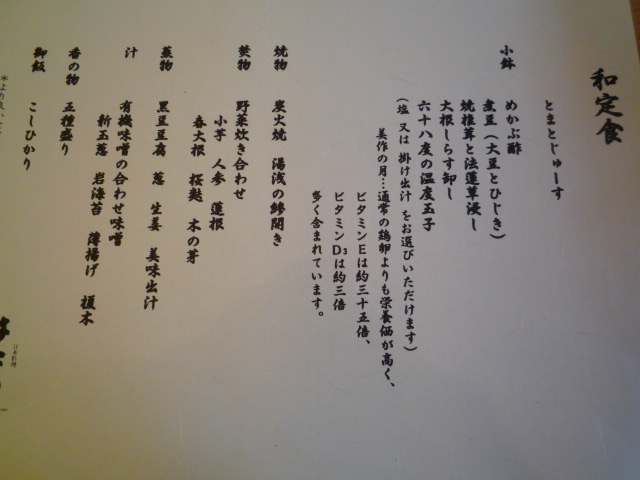 和定食
とまとじゅーす
小鉢
めかぶ酢
煮豆(大豆とひじき)
焼椎茸と法蓮草浸し
大根しらす卸し
六十八度の温度玉子
(塩 又は 掛け出汁 をお選びいただけます)
美作の月…通常の鶏卵よりも栄養価が高く、
ビタミンEは約三十五倍、
ビタミンD3は約三倍
多く含まれています。
焼物 炭火焼 湯浅の鯵開き
焚物 野菜炊き合わせ
小芋 人参 蓮根
春大根 桜麩 木の芽
蒸物 黒豆豆腐 葱 生姜 美味出汁
汁 有機味噌の合わせ味噌
新玉葱 岩海苔 薄揚げ 榎木
香の物 五種盛り
御飯 こしひかり
日本料理